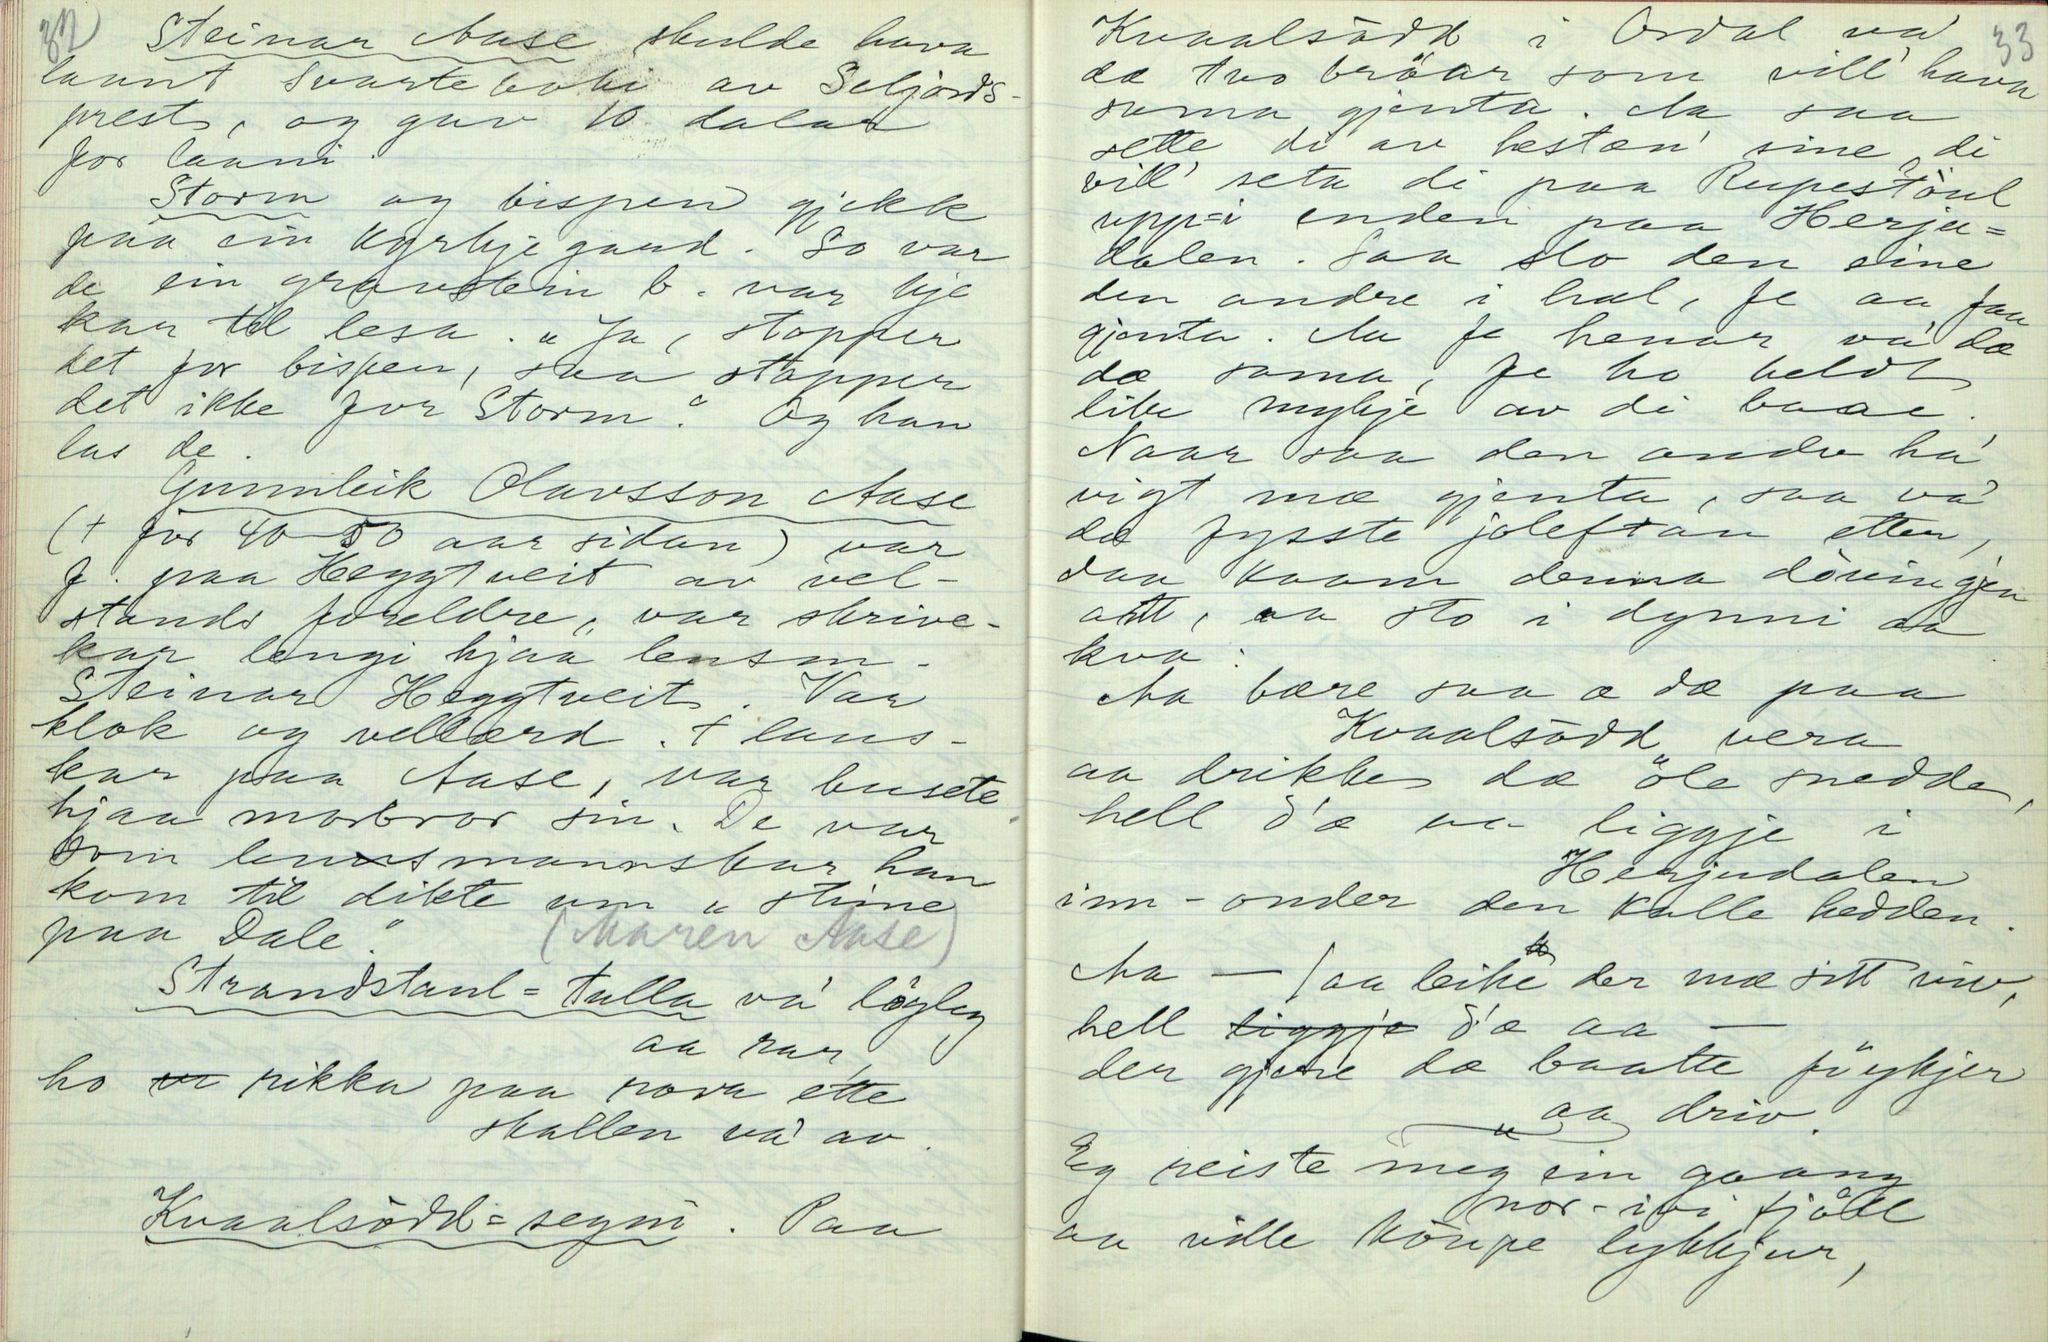 32
Steinar Aase skulde hava
laant Svarteboki av Seljords-
prest, og gav 10 dalar
for laani.
Storm og bispen gjekk
paa ein kyrkjegaard. So var
de ein gravstein b. var kje
kar til lesa. "Ja, stopper
det for bispen, saa stopper
det ikke for Storm." Og han
las de.
Gunnleik Olavsson Aase
(+ for 40-50 aar sidan) var
f. paa Heggtveit av vel-
stands foreldre, var skrive-
kar lengi hjaa lensm.
Steinar Heggtveit. Var
klok og vellærd. + laus-
kar paa Aase, var busete
hjaa morbror sin. De var
som lensmannskar han
kom til dikte um "Stine
paa Dale." (Maren Aase)
Strandstaul-Tulla va' lögleg
aa rar,
ho rikka paa rova ette
skallen va' av.
Kvaalsödd-segni. Paa
33
Kvaalsödd i Ordal va'
dæ two bröar som vill' hava
sama gjenta. Aa saa
sette di av hestæn' sine, di
vill' seta di paa Rupestöul
upp-i enden paa Herju-
dalen. Saa slo den eine
den andre i hæl, fe aa faa
gjenta. Aa fe henar va' dæ
dæ sama, fe ho heldt
like mykje av di baae.
Naar saa den andre ha'
vigt mæ gjenta, saa va'
dæ fysste joleftan etter,
daa kaam denna döuingjen
att, aa sto i dynni aa
kva:
Aa bære saa æ dæ paa
Kvaalsödd vera
aa drikke dæ öle snedde,
hell d'æ aa liggje i
Herjudalen
inn-onder den kalle hedden.
Aa — faa leike der mæ sitt viv,
hell liggje d'æ aa —
der gjere dæ baatte föykjer
aa driv.
Eg reiste meg ein gaang
nor-ivi fjöll
aa ville köupe lykkjur,